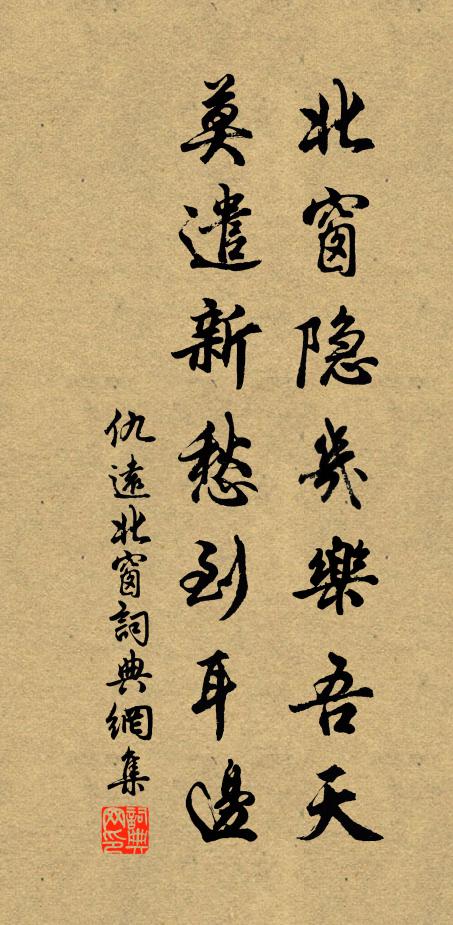 北窗隐几樂吾天
莫遣新愁到耳邊
仇遠北窗詞典網集
詞典网印